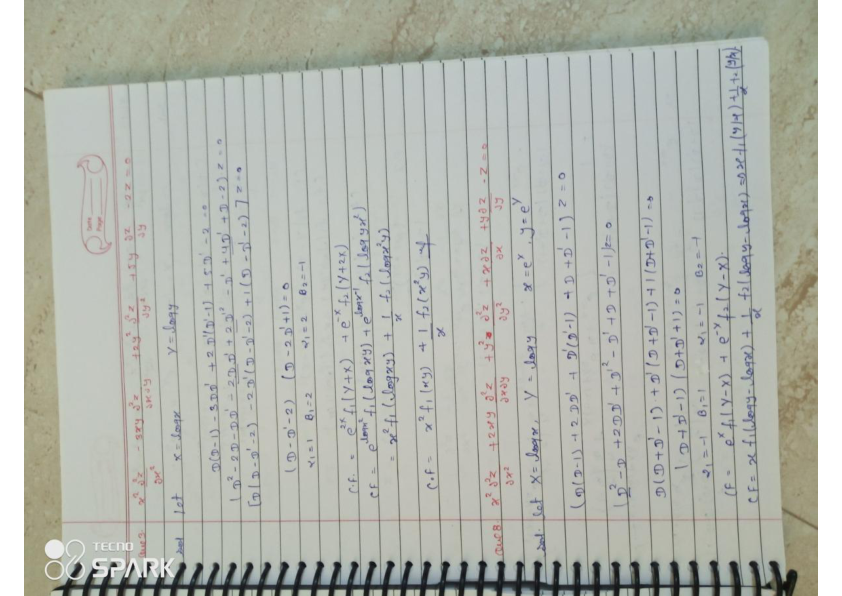 Date
Page
Ques x² ∂²z/∂x² - 3xy ∂²z/∂x∂y + 2y² ∂²z/∂y² + 5y ∂z/∂y - 2z = 0
Sol let x = logx Y = logy
D(D-1) - 3DD' + 2D'(D'-1) + 5D' - 2 = 0
(D² - 2D - DD' - 2DD' + 2D'² - D' + 4D' + D - 2) z = 0
[D(D-D'-2) - 2D'(D-D'-2) + 1(D-D'-2)] z = 0
(D-D'-2) (D-2D'+1) = 0
α₁=1 B₁=2 α₂=2 B₂=-1
C.F = e²ˣ f₁(Y+X) + e⁻ˣ f₂(Y+2X)
CF = e^logx² f₁(logxy) + e^logx⁻¹ f₂(logyx²)
= x² f₁(logxy) + 1/x f₂(logx²y)
C.F = x² f₁(xy) + 1/x f₂(x²y)
Ques x² ∂²z/∂x² + 2xy ∂²z/∂x∂y + y² ∂²z/∂y² + x∂z/∂x + y∂z/∂y - z = 0
Sol. let X = logx, Y = logy x = eˣ, y = eʸ
(D(D-1) + 2DD' + D'(D'-1) + D + D' - 1) z = 0
(D² - D + 2DD' + D'² - D' + D + D' - 1) z = 0
D(D+D'-1) + D'(D+D'-1) + 1(D+D'-1) = 0
(D+D'-1) (D+D'+1) = 0
α₁=-1 B₁=1 α₂=-1 B₂=-1
CF = eˣ f₁(Y-X) + e⁻ˣ f₂(Y-X).
CF = x f₁(logy-logx) + 1/x f₂(logy-logx) = x f₁(y/x) + 1/x f₂(y/x)
TECNO
SPARK